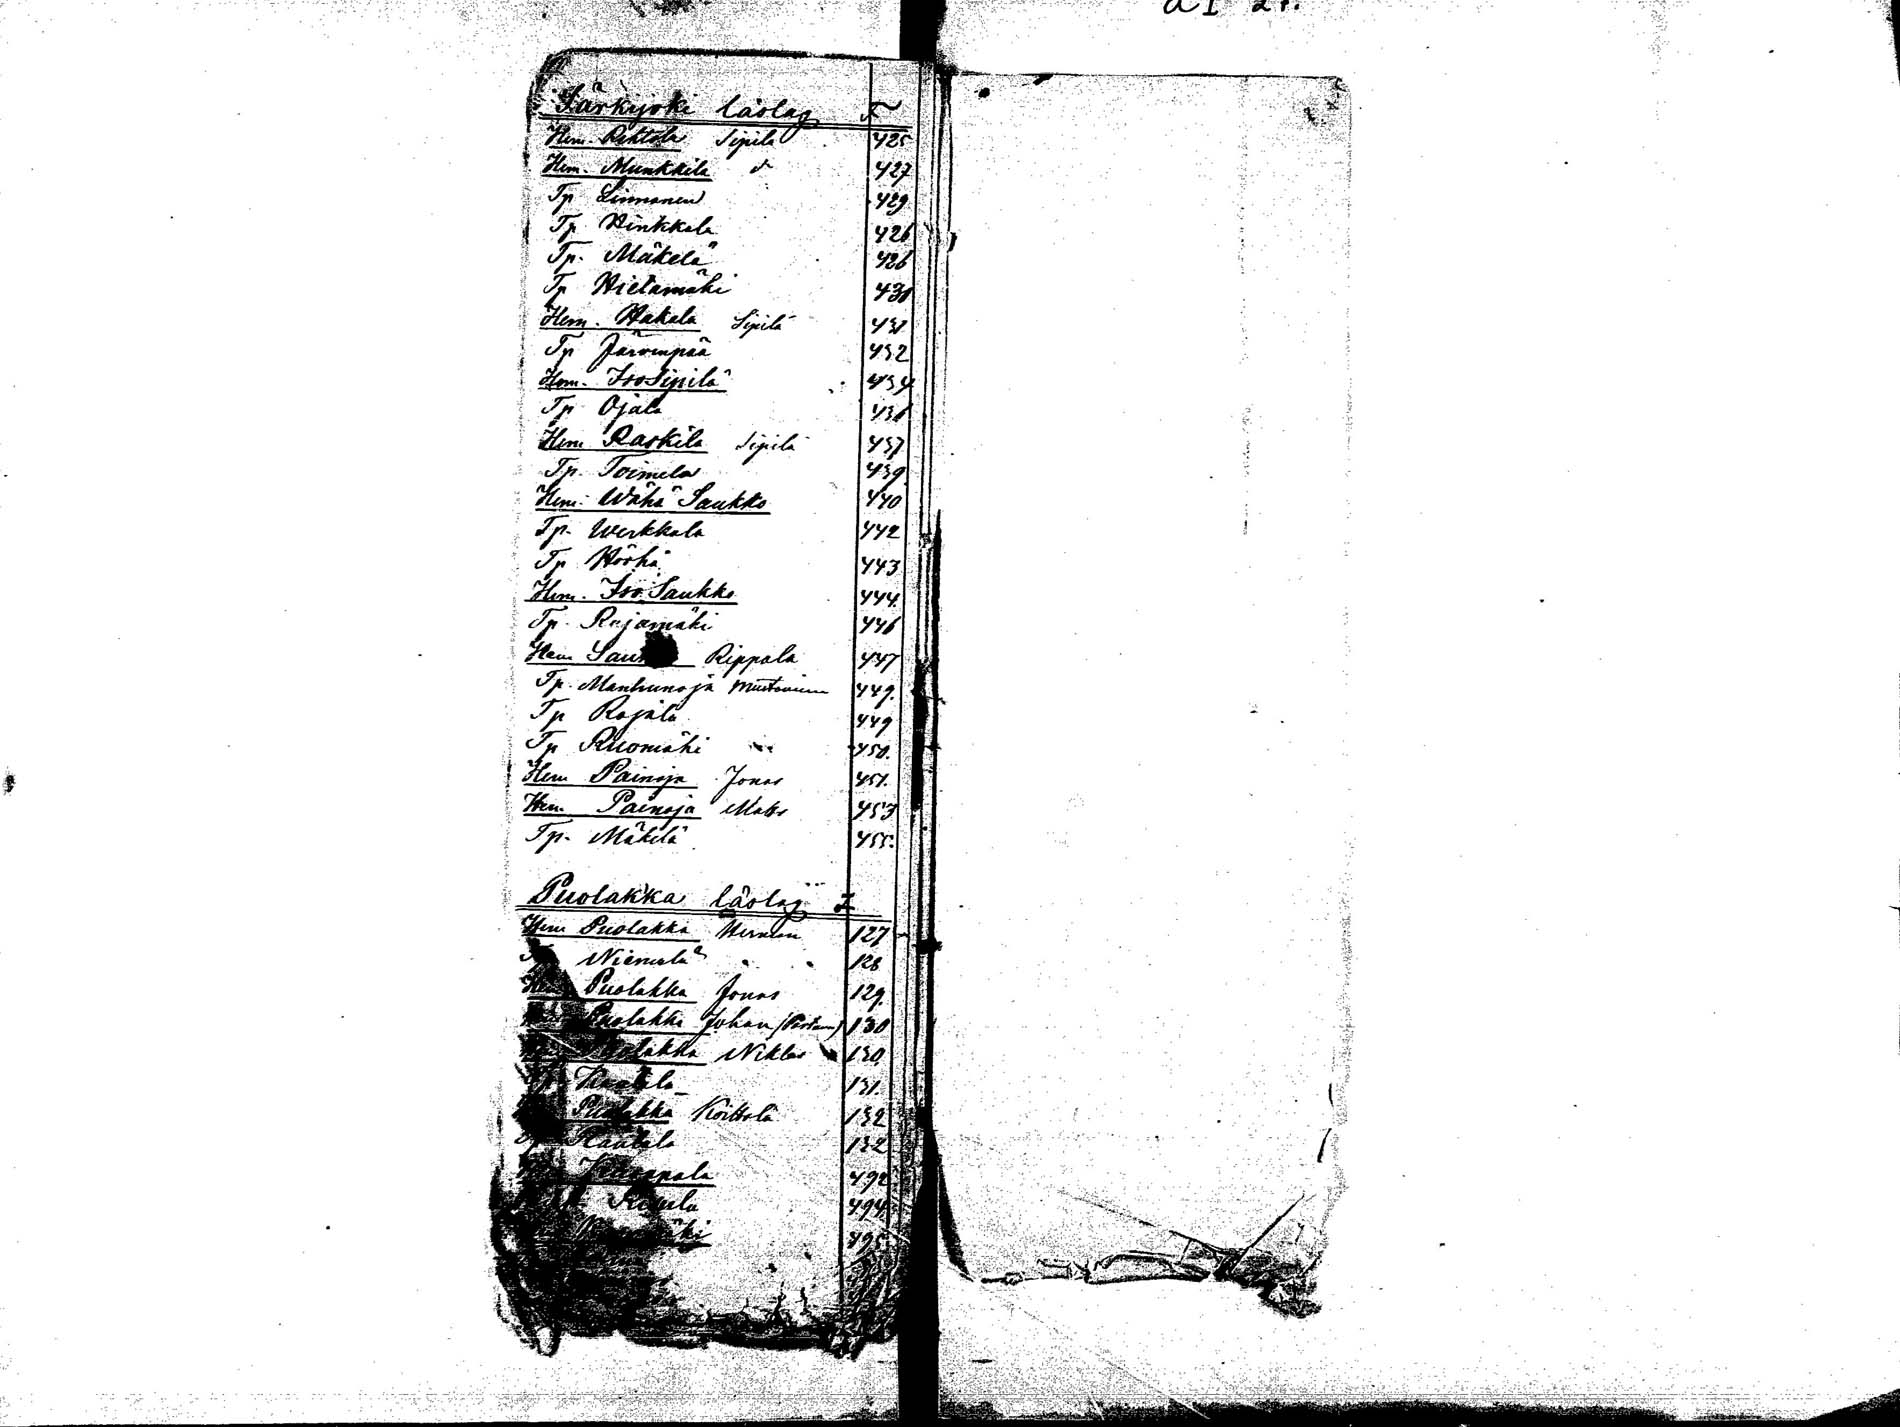 Särkijoki läslag F
Hem. Rehtola Sipilä 425
Hem. Munkkila d 427
Tp Linnanen 429
Tp Hinkkala 426
Tp. Mäkelä 426
Tp Hietamäki 430
Hem. Hakala Sipilä 431
Tp Järvenpää 432
Hem. Iso Sipilä 434
Tp Ojala 436
Hem Raskila Sipilä 437
Tp. Toimela 439
Hem. Wähä Saukko 440
Tp. Werkkala 442
Tp Höökä 443
Hem. Iso Saukko 444
Tp. Rajamäki 446
Hem Rippala 447
Tp. Manhunoja 449.
Tp Rajala 449
Tp Ruomäki 450.
Hem Painoja Jonas 451.
Hem Painoja Matts 453
Tp. Mäkelä 455.
Puolakka läslag I
Hem Puolakka Herman 127
Niemelä 128
Hem Puolakka Jonas 129.
Puolakka Johan 130
Puolakka Niklas 130
131.
Puolakka Koittola 132
Rautala 132
492
494.
495.